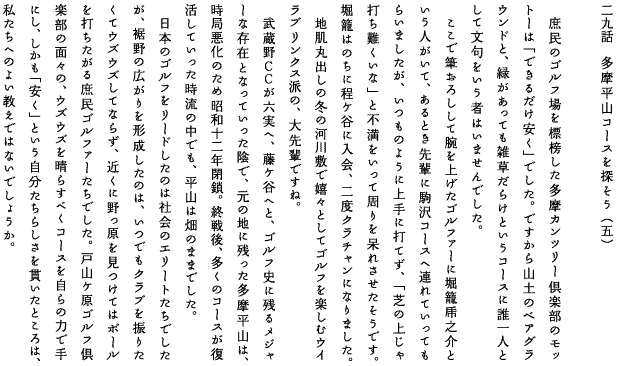 二九話　多摩平山コースを探そう（五）
　庶民のゴルフ場を標榜した多摩カンツリー倶楽部のモッ
トーは「できるだけ安く」でした。ですから山土のベアグラ
ウンドと、緑があっても雑草だらけというコースに誰一人と
して文句をいう者はいませんでした。
　ここで筆おろしして腕を上げたゴルファーに堀籠乕之介と
いう人がいて、あるとき先輩に駒沢コースへ連れていっても
らいましたが、いつものように上手に打てず、「芝の上じゃ
打ち難くいな」と不満をいって周りを呆れさせたそうです。
堀籠はのちに程ケ谷に入会、二度クラチャンになりました。
　地肌丸出しの冬の河川敷で嬉々としてゴルフを楽しむウイ
ラブリンクス派の、大先輩ですね。
　武蔵野ＣＣが六実へ、藤ケ谷へと、ゴルフ史に残るメジャ
ーな存在となっていった陰で、元の地に残った多摩平山は、
時局悪化のため昭和十二年閉鎖。終戦後、多くのコースが復
活していった時流の中でも、平山は畑のままでした。
　日本のゴルフをリードしたのは社会のエリートたちでした
が、裾野の広がりを形成したのは、いつでもクラブを振りた
くてウズウズしてならず、近くに野っ原を見つけてはボール
を打ちたがる庶民ゴルファーたちでした。戸山ケ原ゴルフ倶
楽部の面々の、ウズウズを晴らすべくコースを自らの力で手
にし、しかも「安く」という自分たちらしさを貫いたところは、
私たちへのよい教えではないでしょうか。